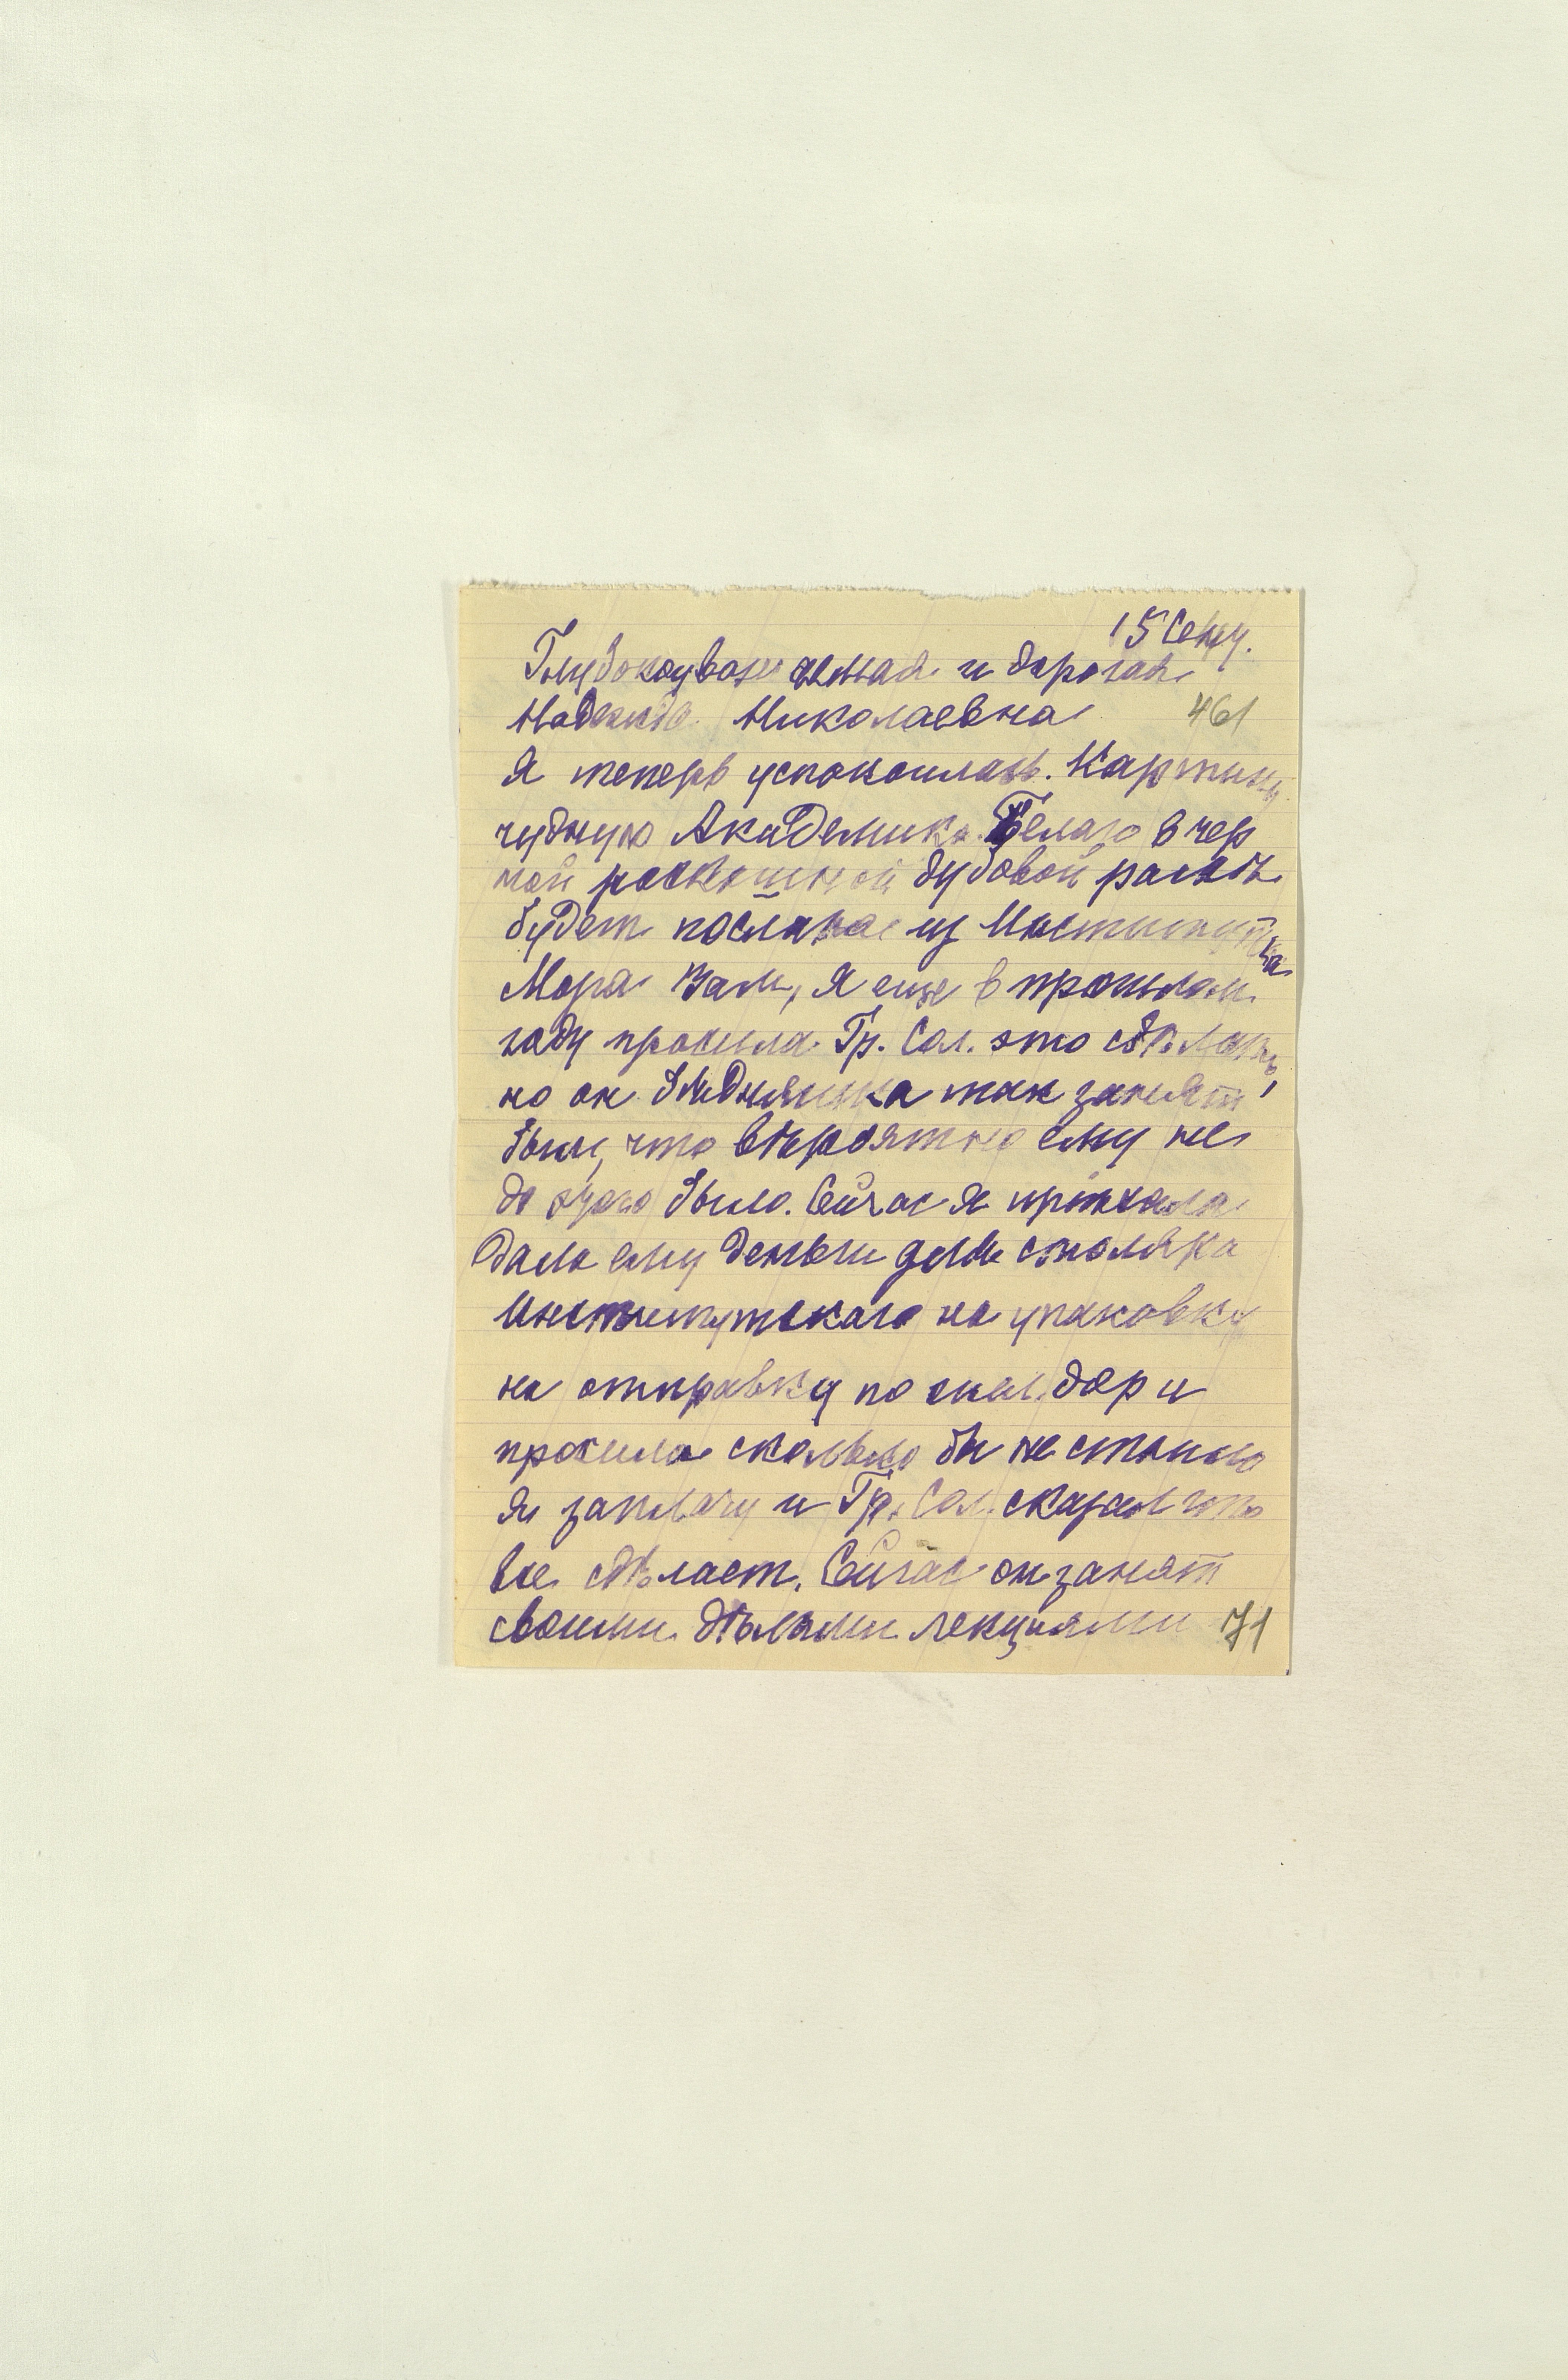 15 Сент.
Глубокоуважаемая и дорогая
Надежда Николаевна 461
Я теперь успокоилась. Картину
чудную Академика Белаго в чер
ной роскошной дубовой рамѣ
будет послана из Института
Мора Вам, я еще в прошлом
году просила Гр. Сол. это сдѣлать,
но он бѣдняшка так занят
был, что вѣроятно ему не
до этого было. Сейчас я приѣхала
дала ему деньги для столяра
Институтскаго на упаковку
на отправку по жел. дор и
просила сколько бы не стоило
я заплачу и Гр. Сол. сказал что
все сдѣлает. Сейчас он занят
своими дѣлами лекциями 71